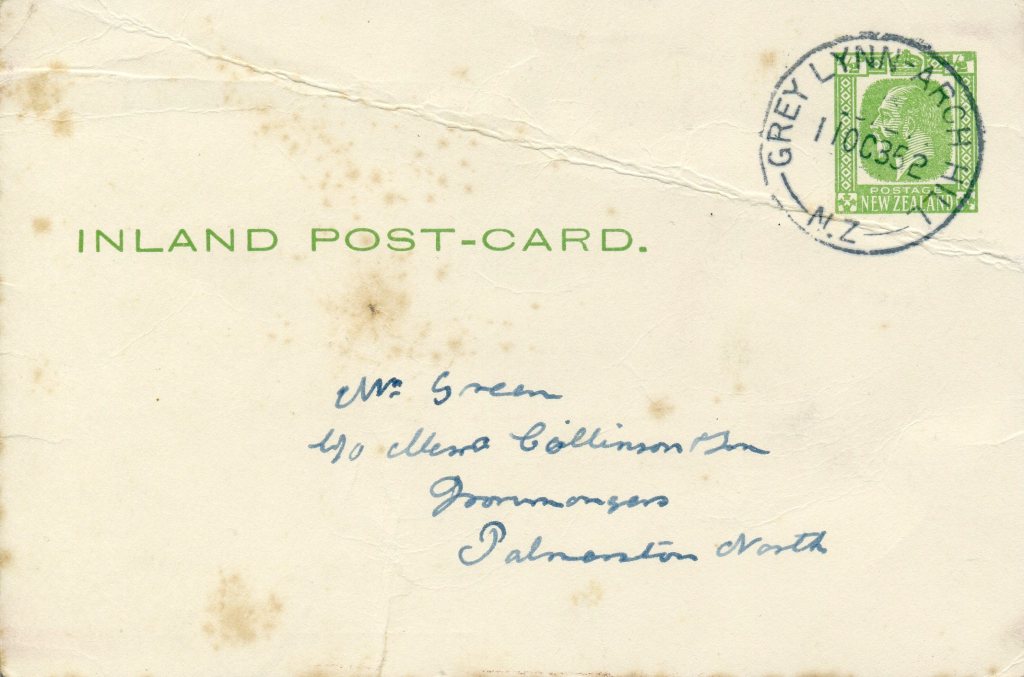 GREY LYNN-ARCH HILL
11 OC 35 2
N.Z
½ ½
POSTAGE
NEW ZEALAND
INLAND POST-CARD.
Mr Green
c/o Messrs Collinson & Son
Ironmongers
Palmerston North